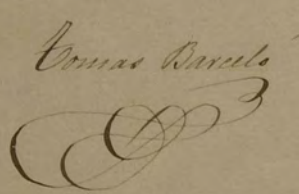 Tomas Barceló